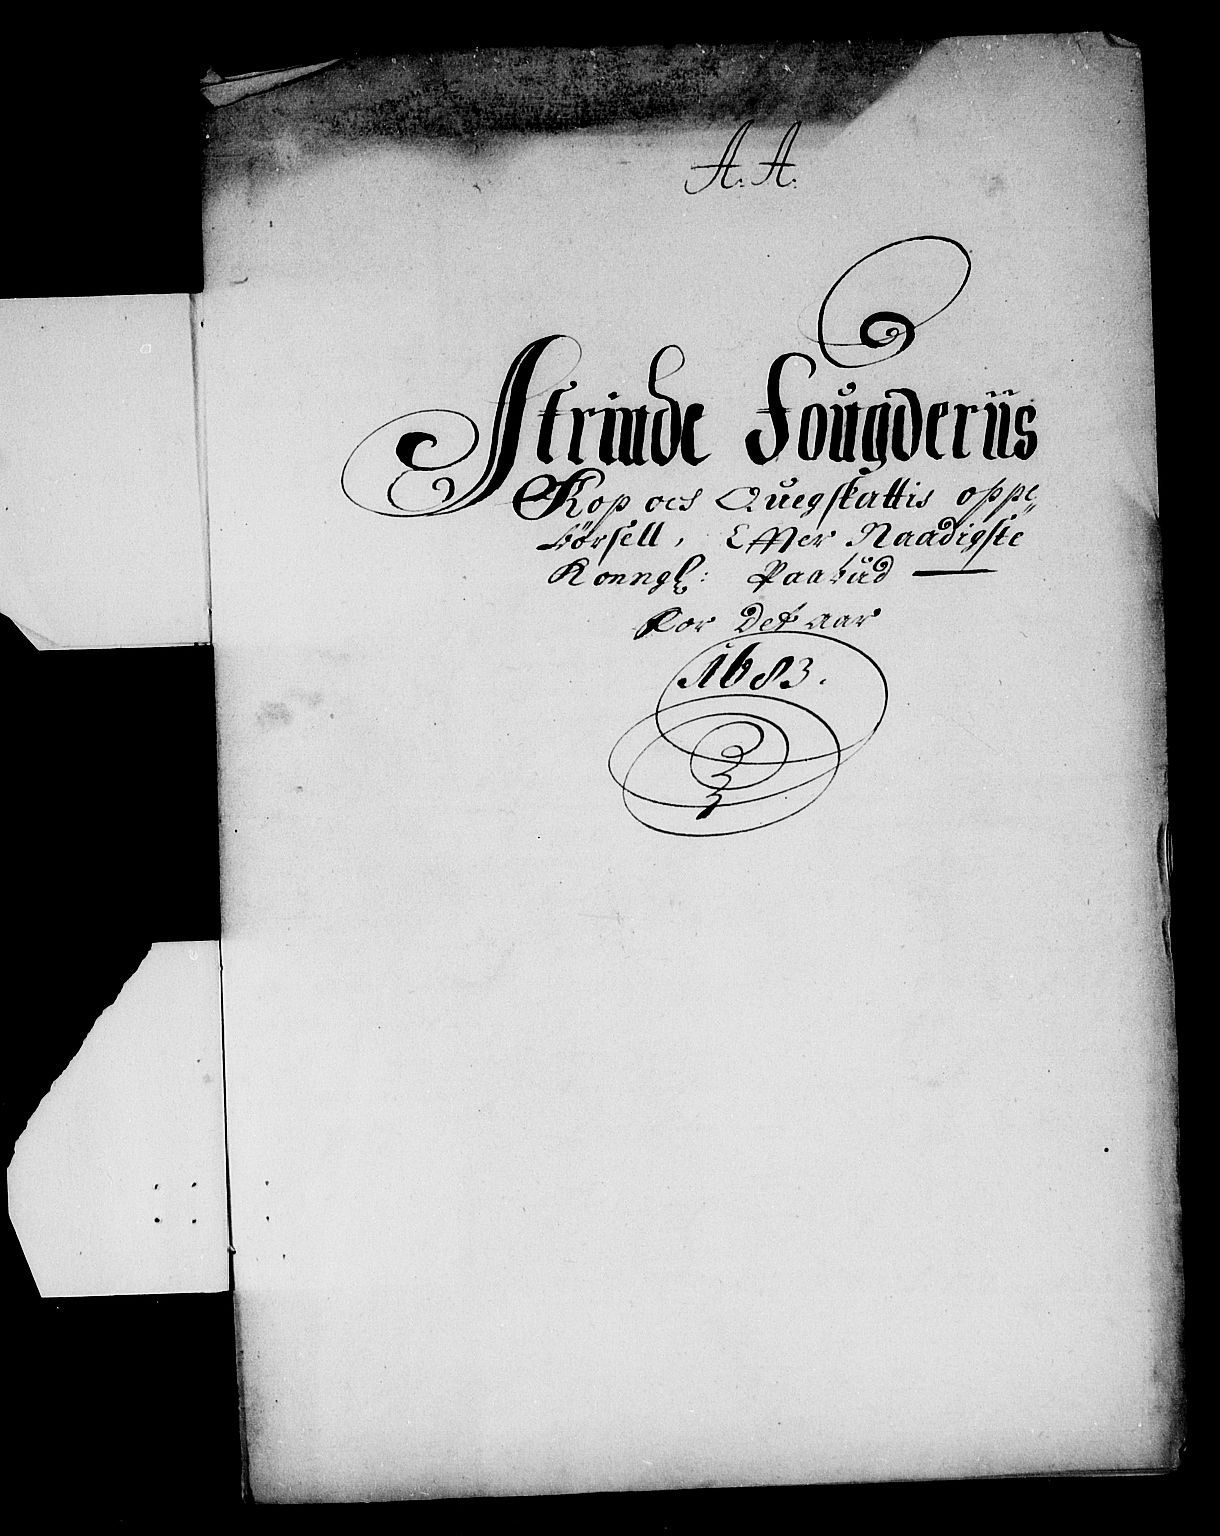 A: A:
Strinde Fougderiis
Kop och Quegskattis oppe
börsell, Effter Naadigste
Konngl: Paabud
For Det aar
1683.